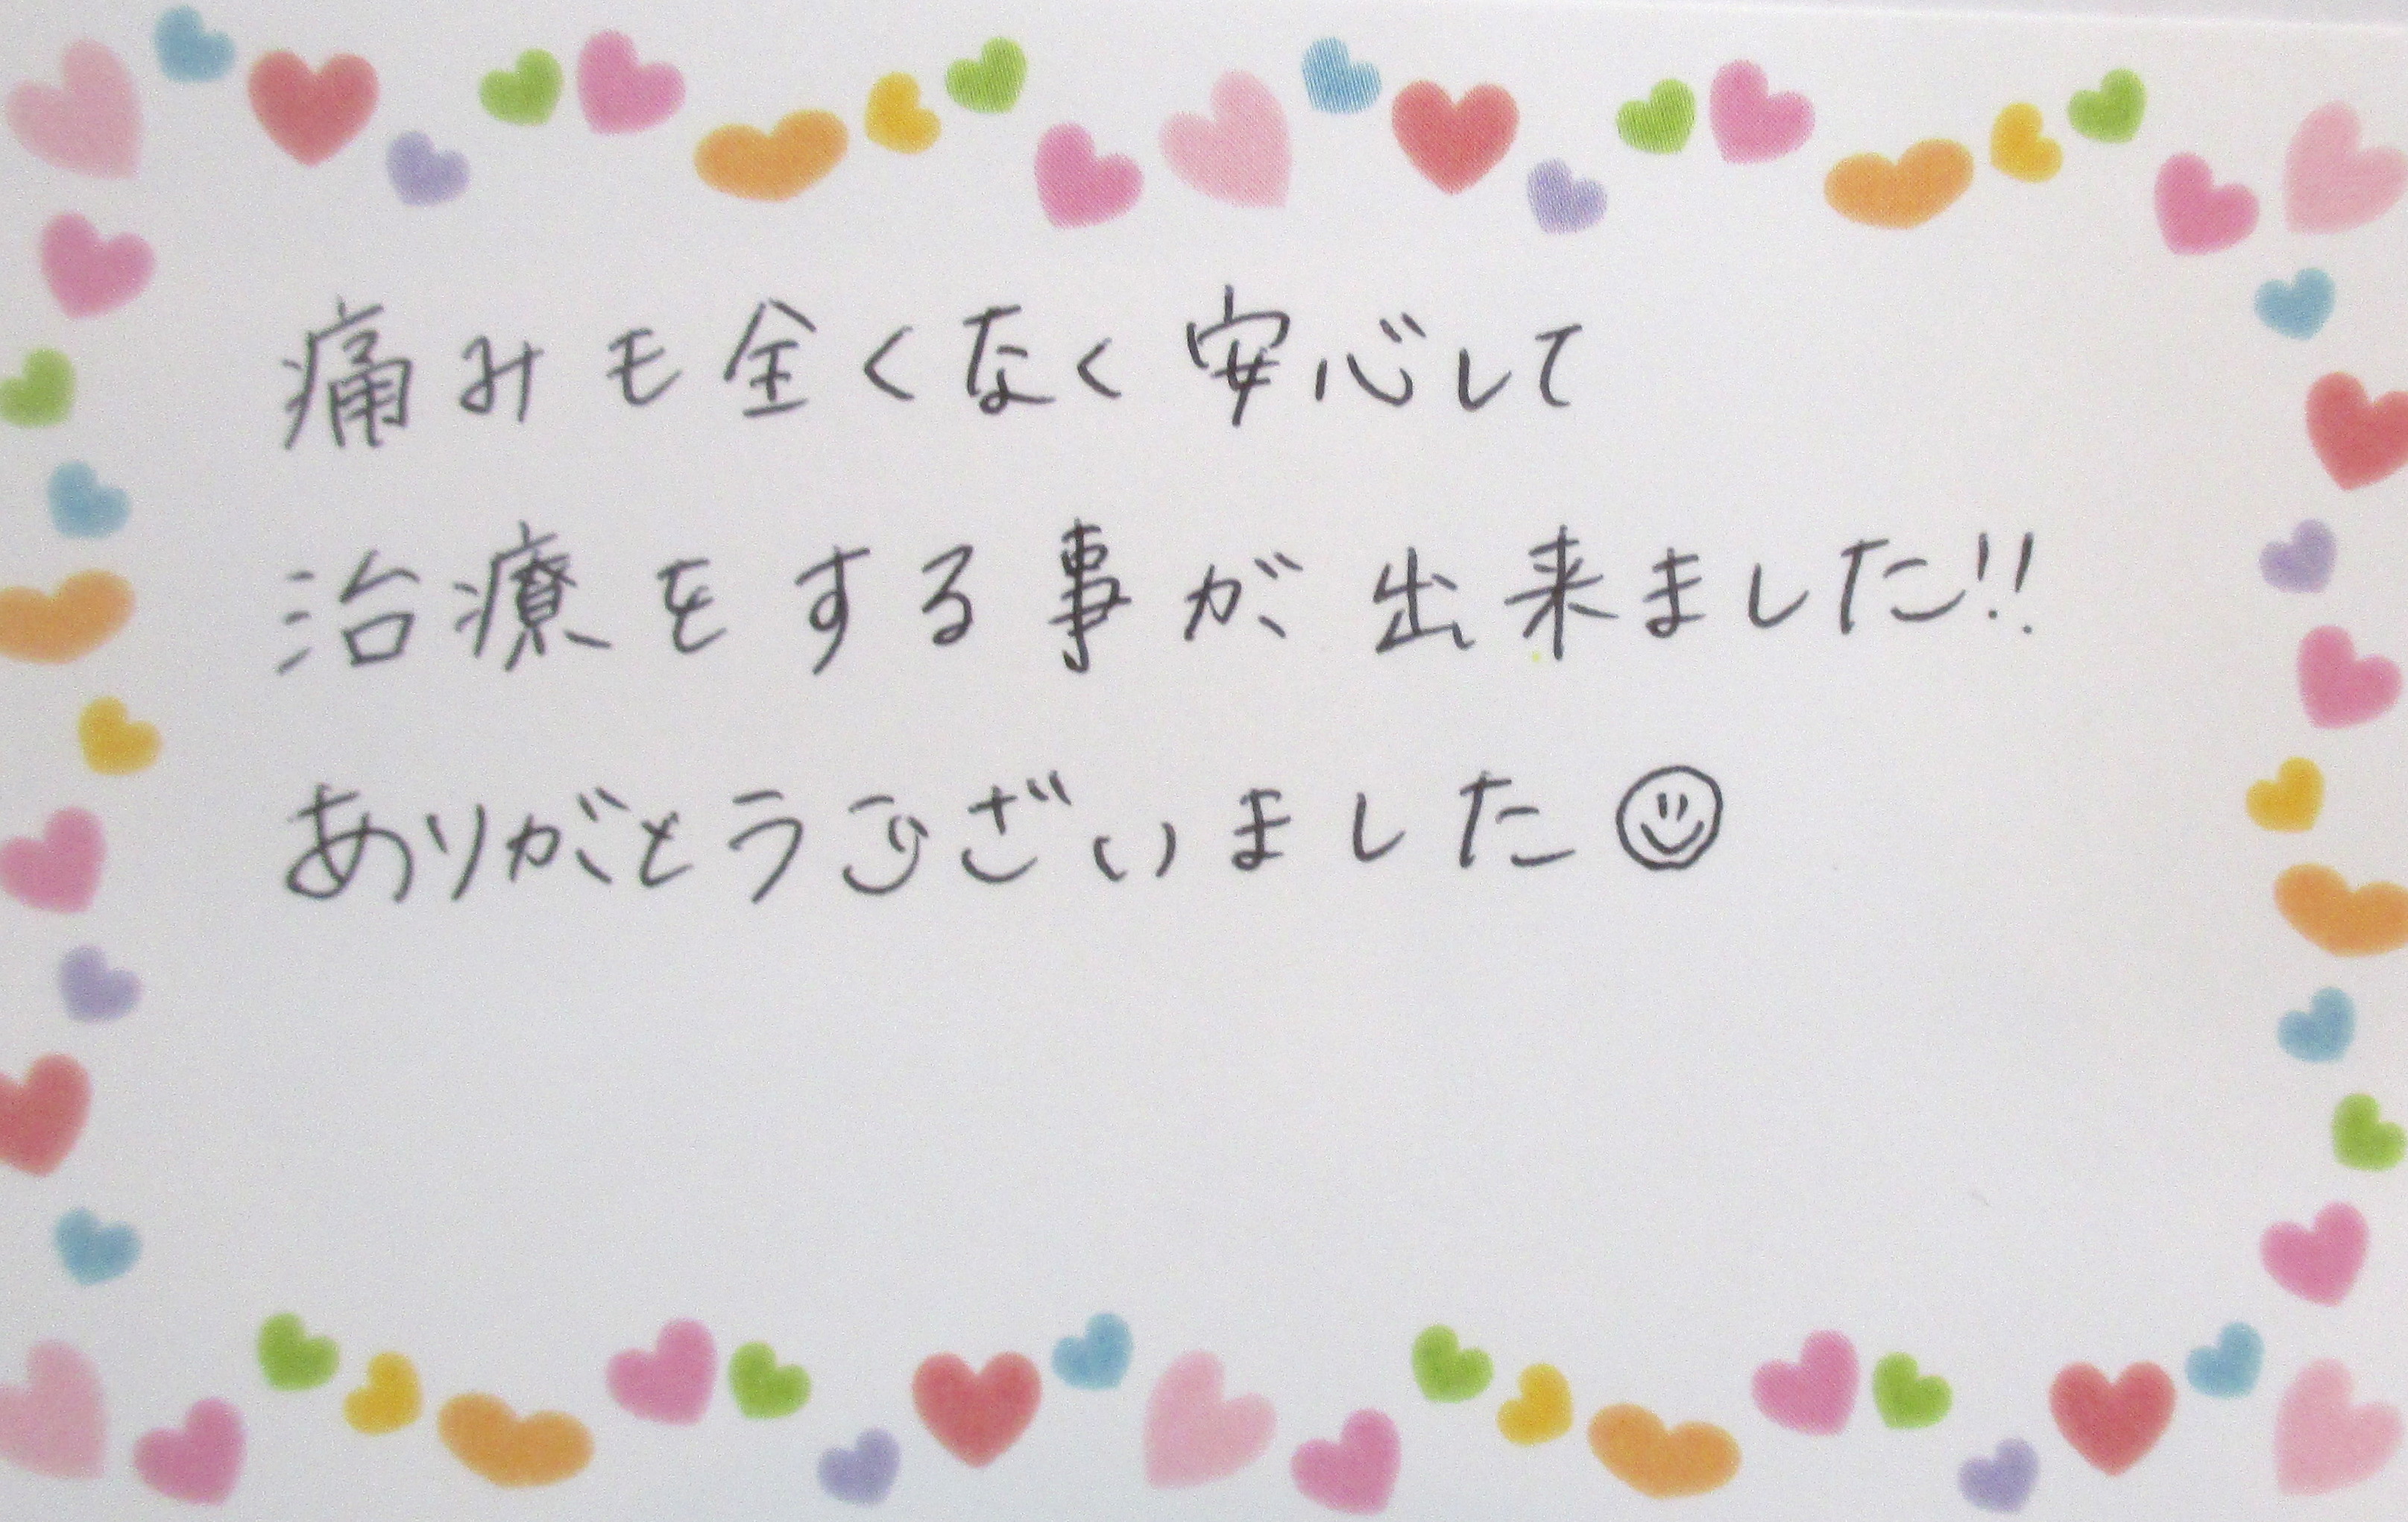 痛みも全くなく安心して
治療をする事が出来ました!!
ありがとうございました☺